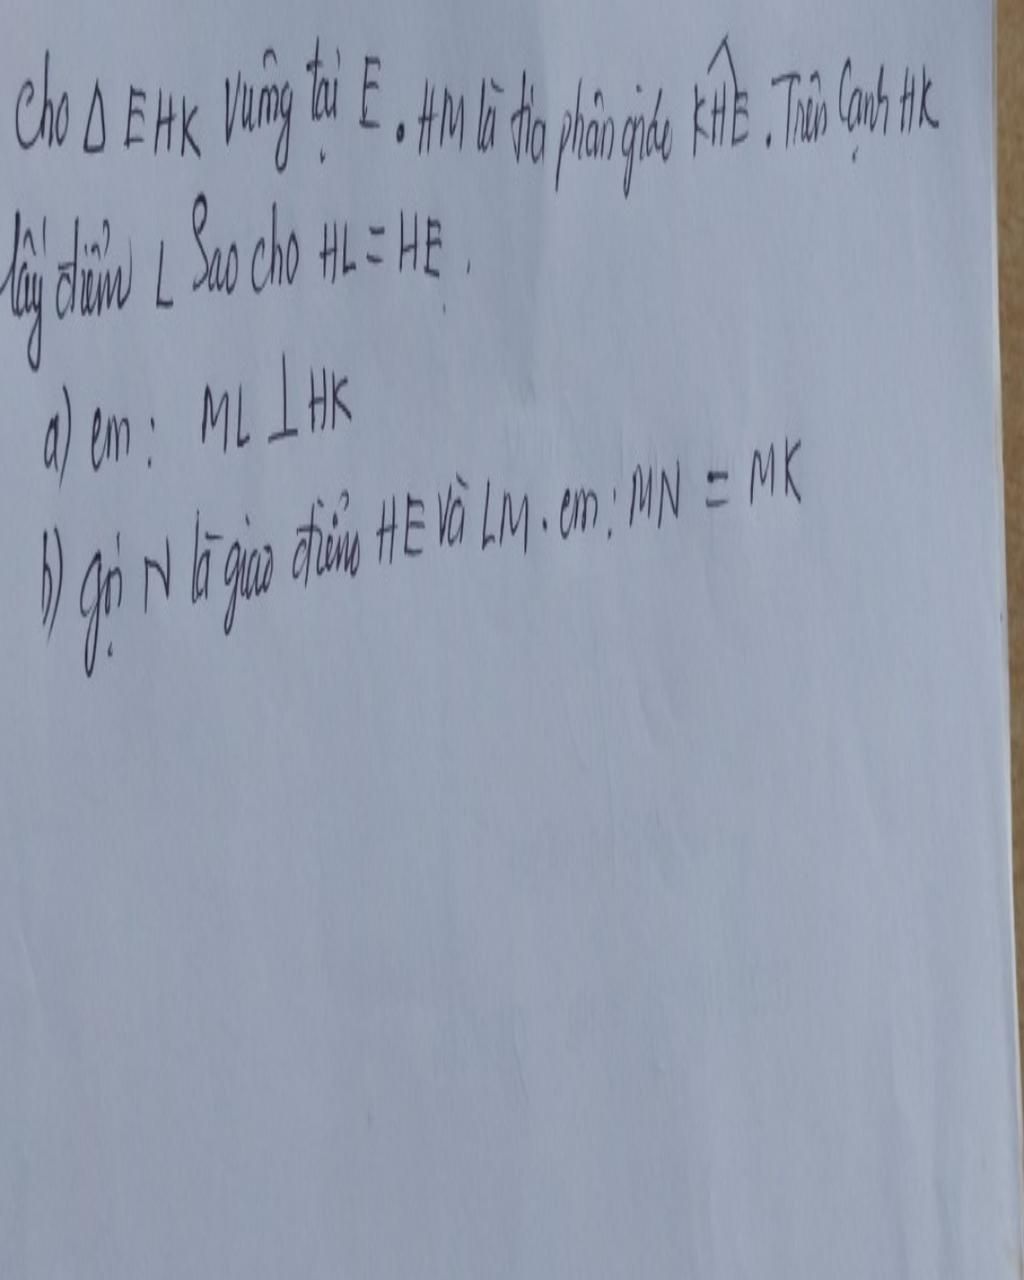 Cho Δ EHK vuông tại E. HM là tia phân giác KĤE. Trên Cạnh HK
lấy điểm L Sao cho HL = HE.
a) cm: ML ⊥ HK
b) gọi N là giao điểm HE và LM. cm: MN = MK